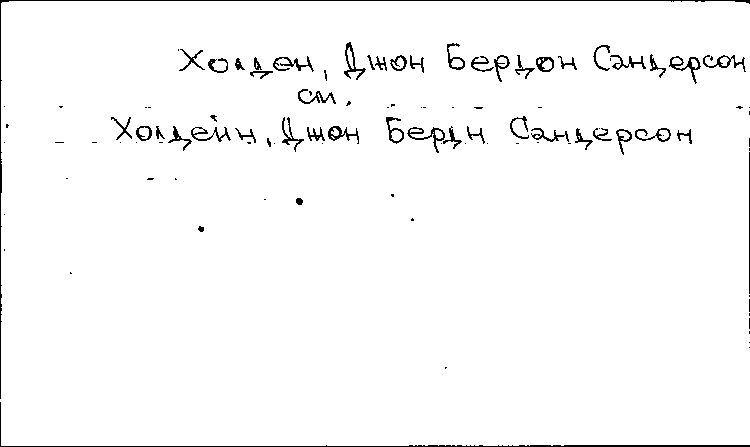 Холден, Джон Бердон Сандерсон
см.
Холдейн, Джон Бердн Сандерсон